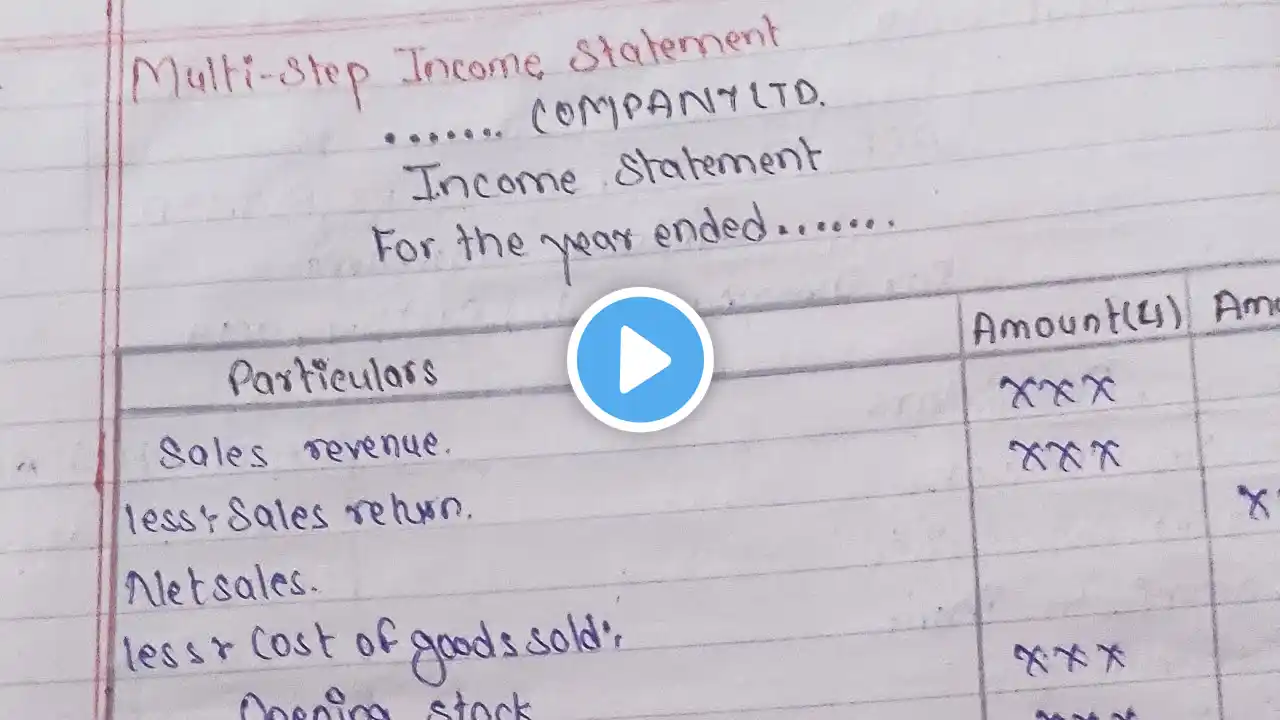 Multi-Step Income Statement
....... COMPANY LTD.
Income Statement
For the year ended.......
Particulars Amount(4) Amo
Sales revenue. xxx
less:- Sales return. xxx
Net sales. x
less:- Cost of goods sold:-
Opening stock xxx